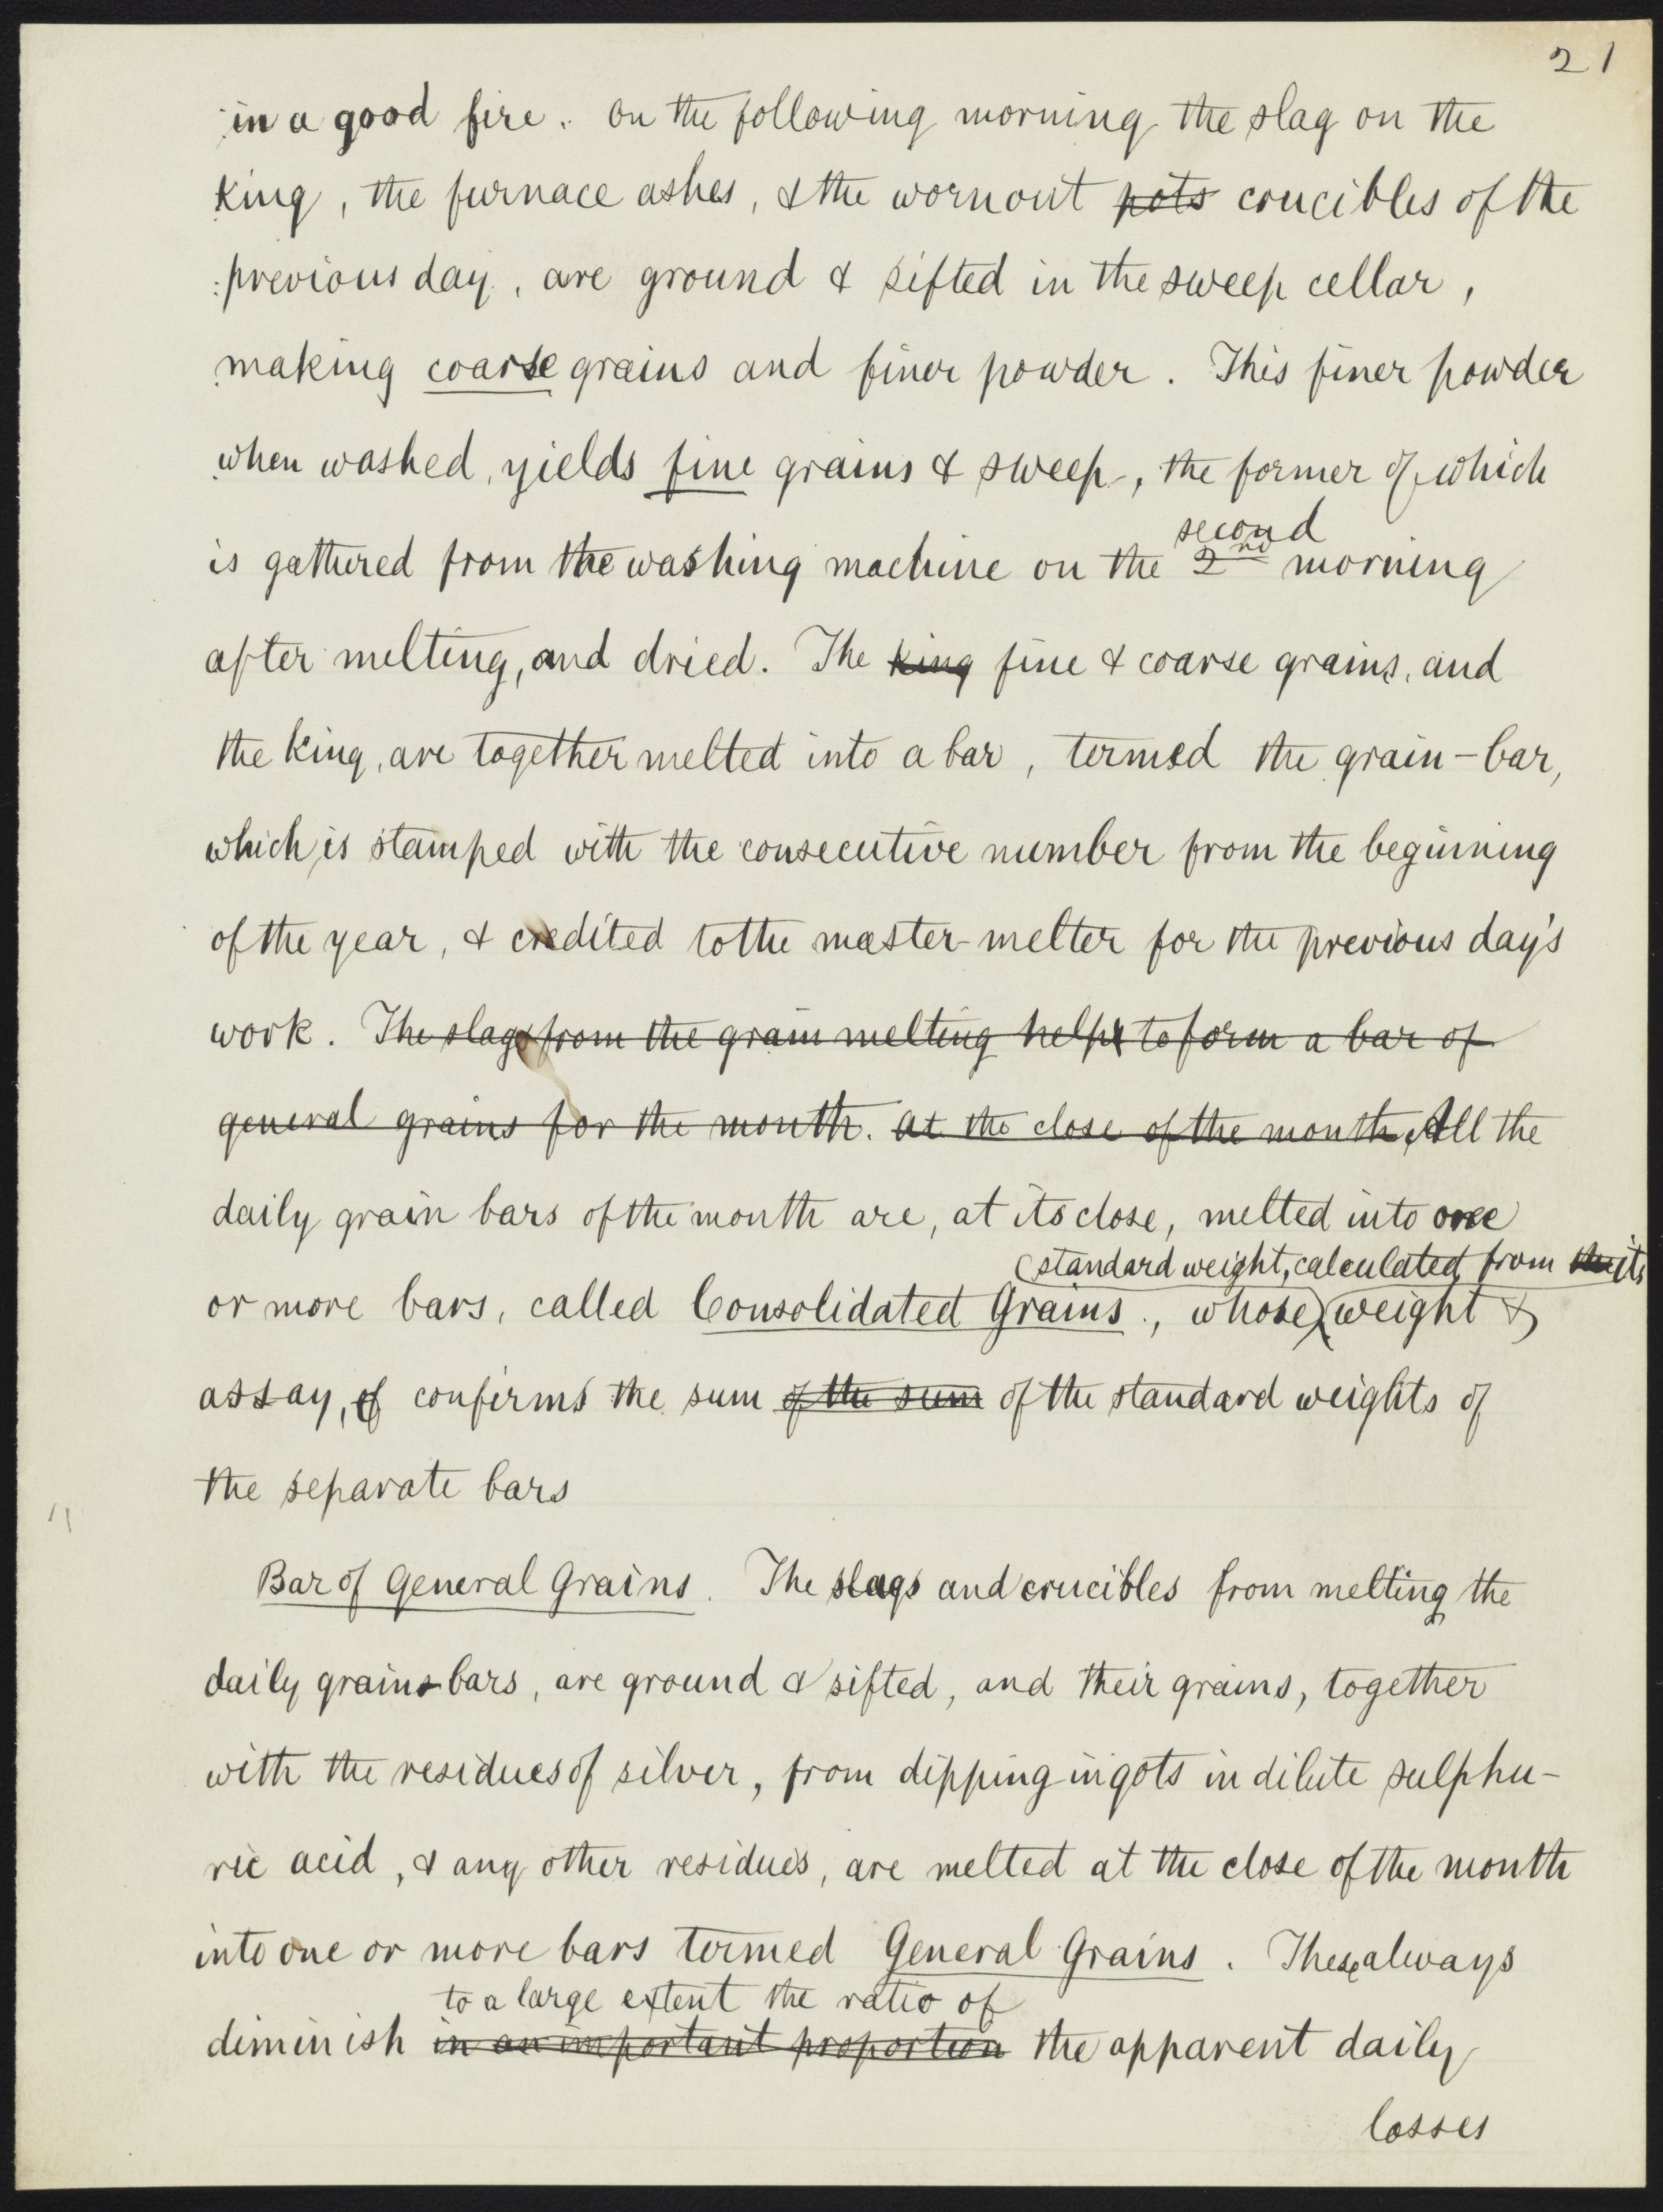 21
in a good fire. On the following morning the slag on the
King, the furnace ashes, & the wornout pots crucibles of the
previous day, are ground & sifted in the sweep cellar,
making coarse grains and finer powder. This finer powder
when washed, yields fine grains & sweep, the former of which
second
is gathered from the washing machine on the 2nd morning
after melting, and dried. The King fine & coarse grains, and
the King, are together melted into a bar, termed the grain-bar,
which is stamped with the consecutive number from the beginning
of the year, & credited to the master-melter for the previous day's
work. The slags from the grain melting helps to form a bar of
general grains for the month. At the close of the month, All the
daily grain bars of the month are, at its close, melted into one
(standard weight, calculated from the its
or more bars, called Consolidated Grains, whose weight &
assay, of confirms the sum of the sum of the standard weights of
the separate bars
Bar of General Grains. The slags and crucibles from melting the
daily grains bars, are ground & sifted, and their grains, together
with the residues of silver, from dipping ingots in dilute sulphu-
ric acid, & any other residues, are melted at the close of the month
into one or more bars termed General Grains. These always
to a large extent the ratio of
diminish in an important proportion the apparent daily
losses